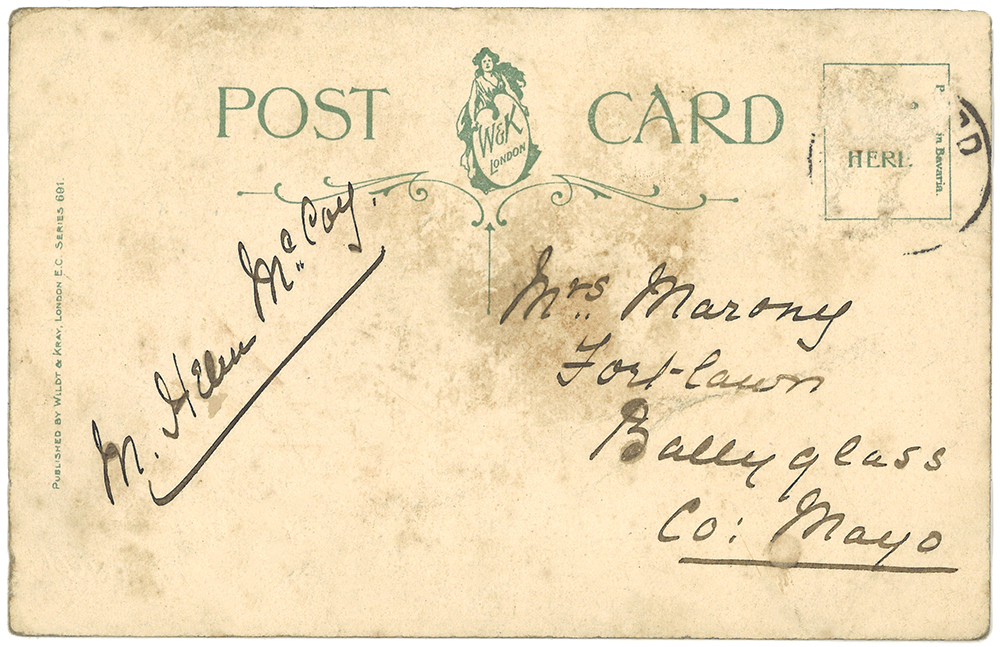 POST CARD
W&K
LONDON
HERE
P in Bavaria.
PUBLISHED BY WILDT & KRAY, LONDON E.C. SERIES 691.
M. Helen McCoy.
Mrs. Marony
Fort-lawn
Ballyglass
Co: Mayo